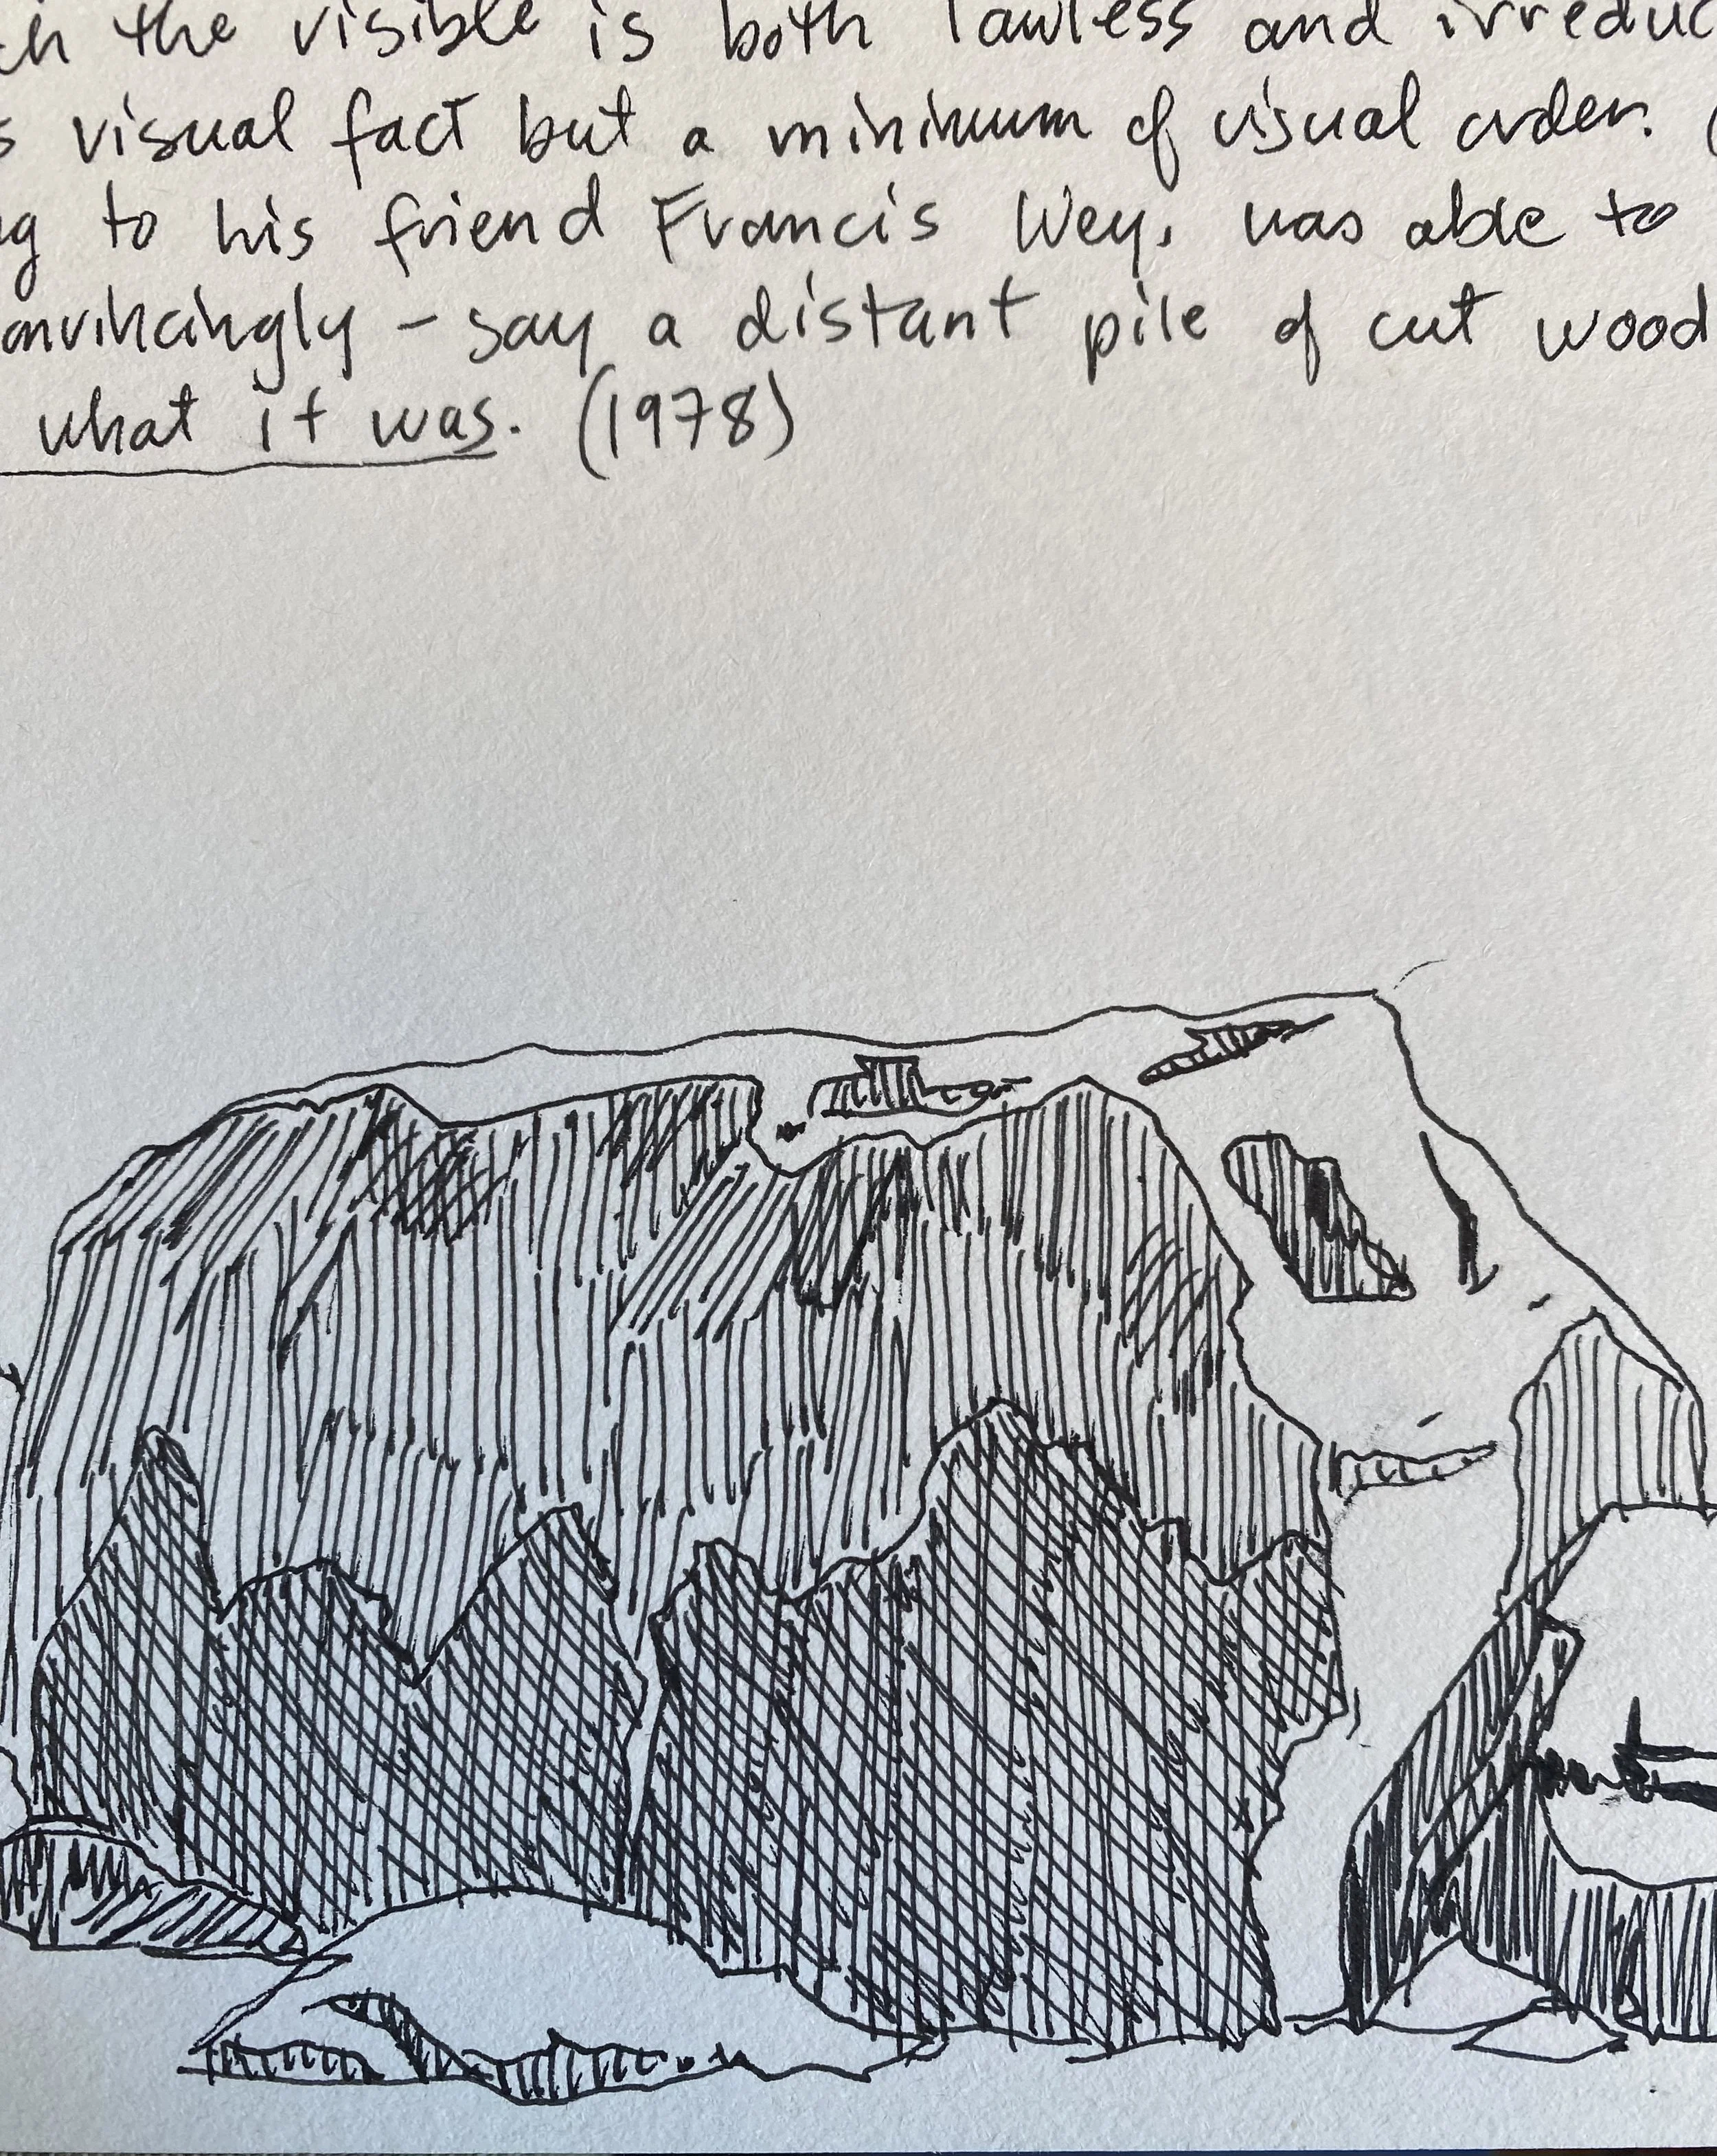 ch the visible is both lawless and irreduc
s visual fact but a minimum of visual order. (
ng to his friend Francis Wey, was able to
onvincingly - say a distant pile of cut wood
what it was. (1978)